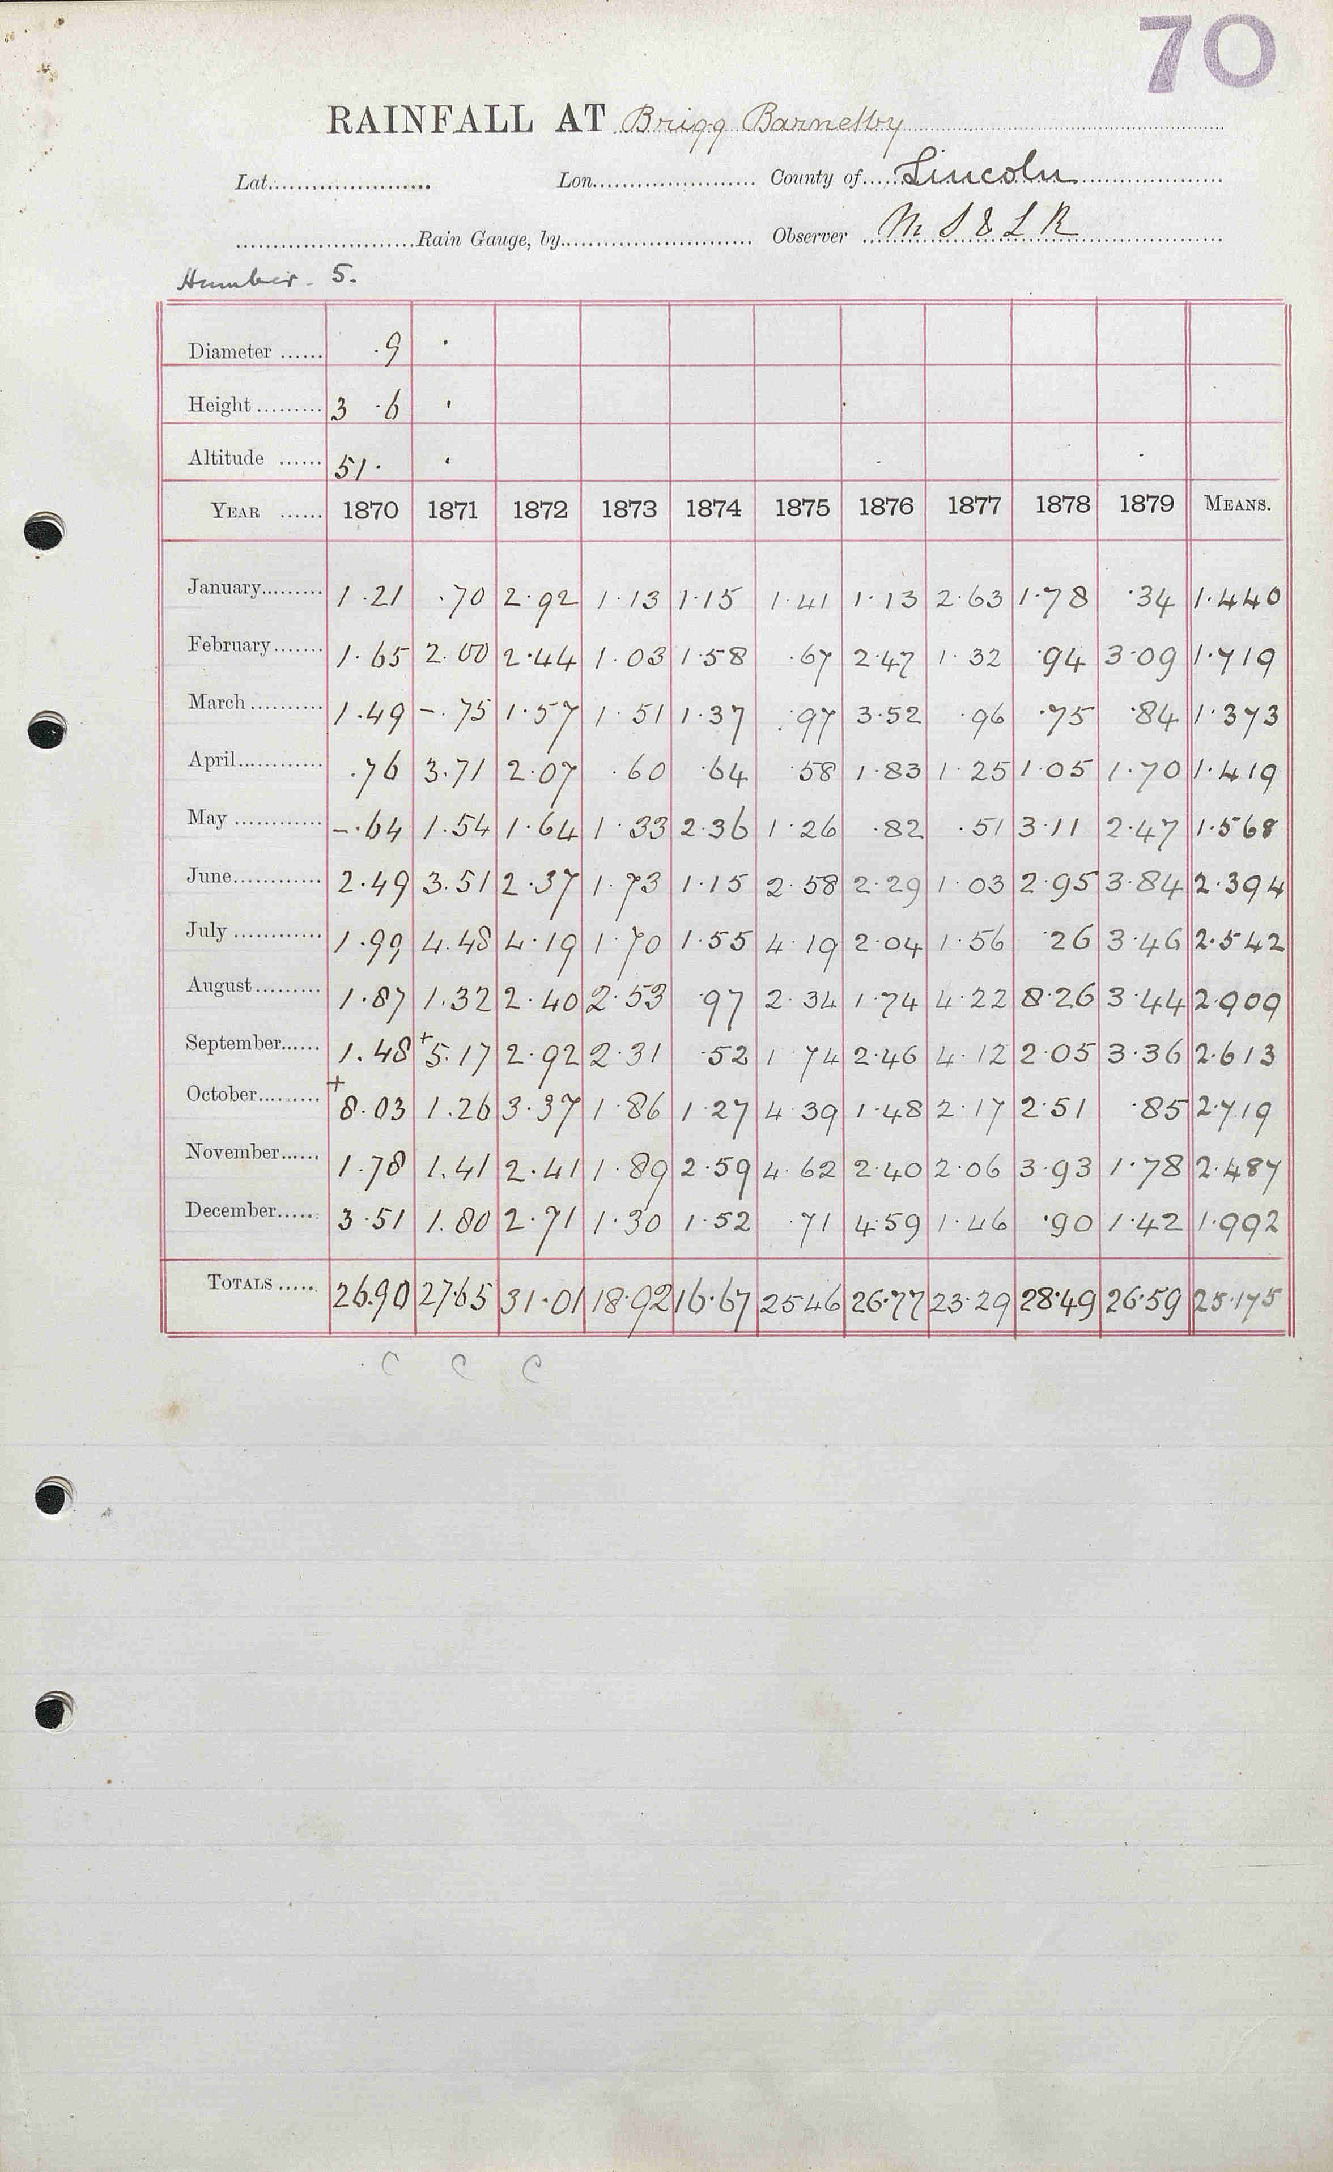 70
RAINFALL AT Brigg Barnetby
Lat. Lon. County of Lincoln
Rain Gauge, by Observer M S & L R
Humber. 5.
Diameter ...... .9 .
Height ......... 3 .6 .
Altitude ...... 51. .
YEAR ...... 1870 1871 1872 1873 1874 1875 1876 1877 1878 1879 MEANS.
January......... 1.21 .70 2.92 1.13 1.15 1.41 1.13 2.63 1.78 .34 1.440
February....... 1.65 2.00 2.44 1.03 1.58 .67 2.47 1.32 .94 3.09 1.719
March .......... 1.49 -.75 1.57 1.51 1.37 .97 3.52 .96 .75 .84 1.373
April............ .76 3.71 2.07 .60 .64 .58 1.83 1.25 1.05 1.70 1.419
May ............ -.64 1.54 1.64 1.33 2.36 1.26 .82 .51 3.11 2.47 1.568
June............ 2.49 3.51 2.37 1.73 1.15 2.58 2.29 1.03 2.95 3.84 2.394
July ............ 1.99 4.48 4.19 1.70 1.55 4.19 2.04 1.56 .26 3.46 2.542
August......... 1.87 1.32 2.40 2.53 .97 2.34 1.74 4.22 8.26 3.44 2.909
September...... 1.48 +5.17 2.92 2.31 .52 1.74 2.46 4.12 2.05 3.36 2.613
October......... +8.03 1.26 3.37 1.86 1.27 4.39 1.48 2.17 2.51 .85 2.719
November...... 1.78 1.41 2.41 1.89 2.59 4.62 2.40 2.06 3.93 1.78 2.487
December...... 3.51 1.80 2.71 1.30 1.52 .71 4.59 1.46 .90 1.42 1.992
TOTALS ..... 26.90 27.65 31.01 18.92 16.67 25.46 26.77 23.29 28.49 26.59 25.175
C C C